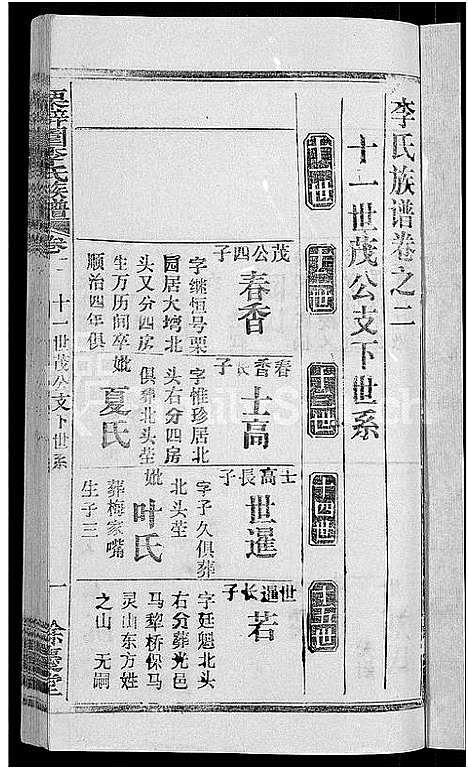 李氏族谱卷之二
十一世茂公支下世系
十四世
茂公四子
春香
字继恒号栗
园居大塆北
头又分四房
生万历间卒
顺治四年俱
春香长子
士高
字惟珍居北
头右分四房
俱葬北头茔
妣
夏氏
士高長子
世暹
字子久俱葬
北头茔
妣
叶氏
葬梅家嘴
生子三
世暹长子
若
字廷魁北头
右分葬光邑
马犂桥保马
灵山东方姓
之山 无嗣
李氏族譜
十一世茂公支下世系
一